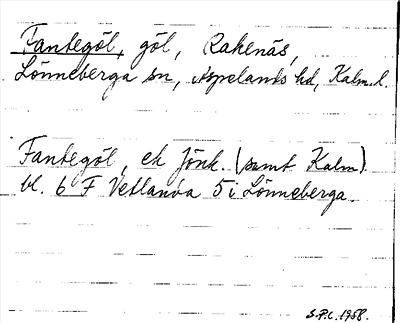 Fantegöl, göl, Rakenäs,
Lönneberga sn, Aspelands hd, Kalm. l.
Fantegöl, ek Jönk. (samt Kalm)
bl. 6 F Vetlanda 5 i Lönneberga.
S.P.C. 1958.